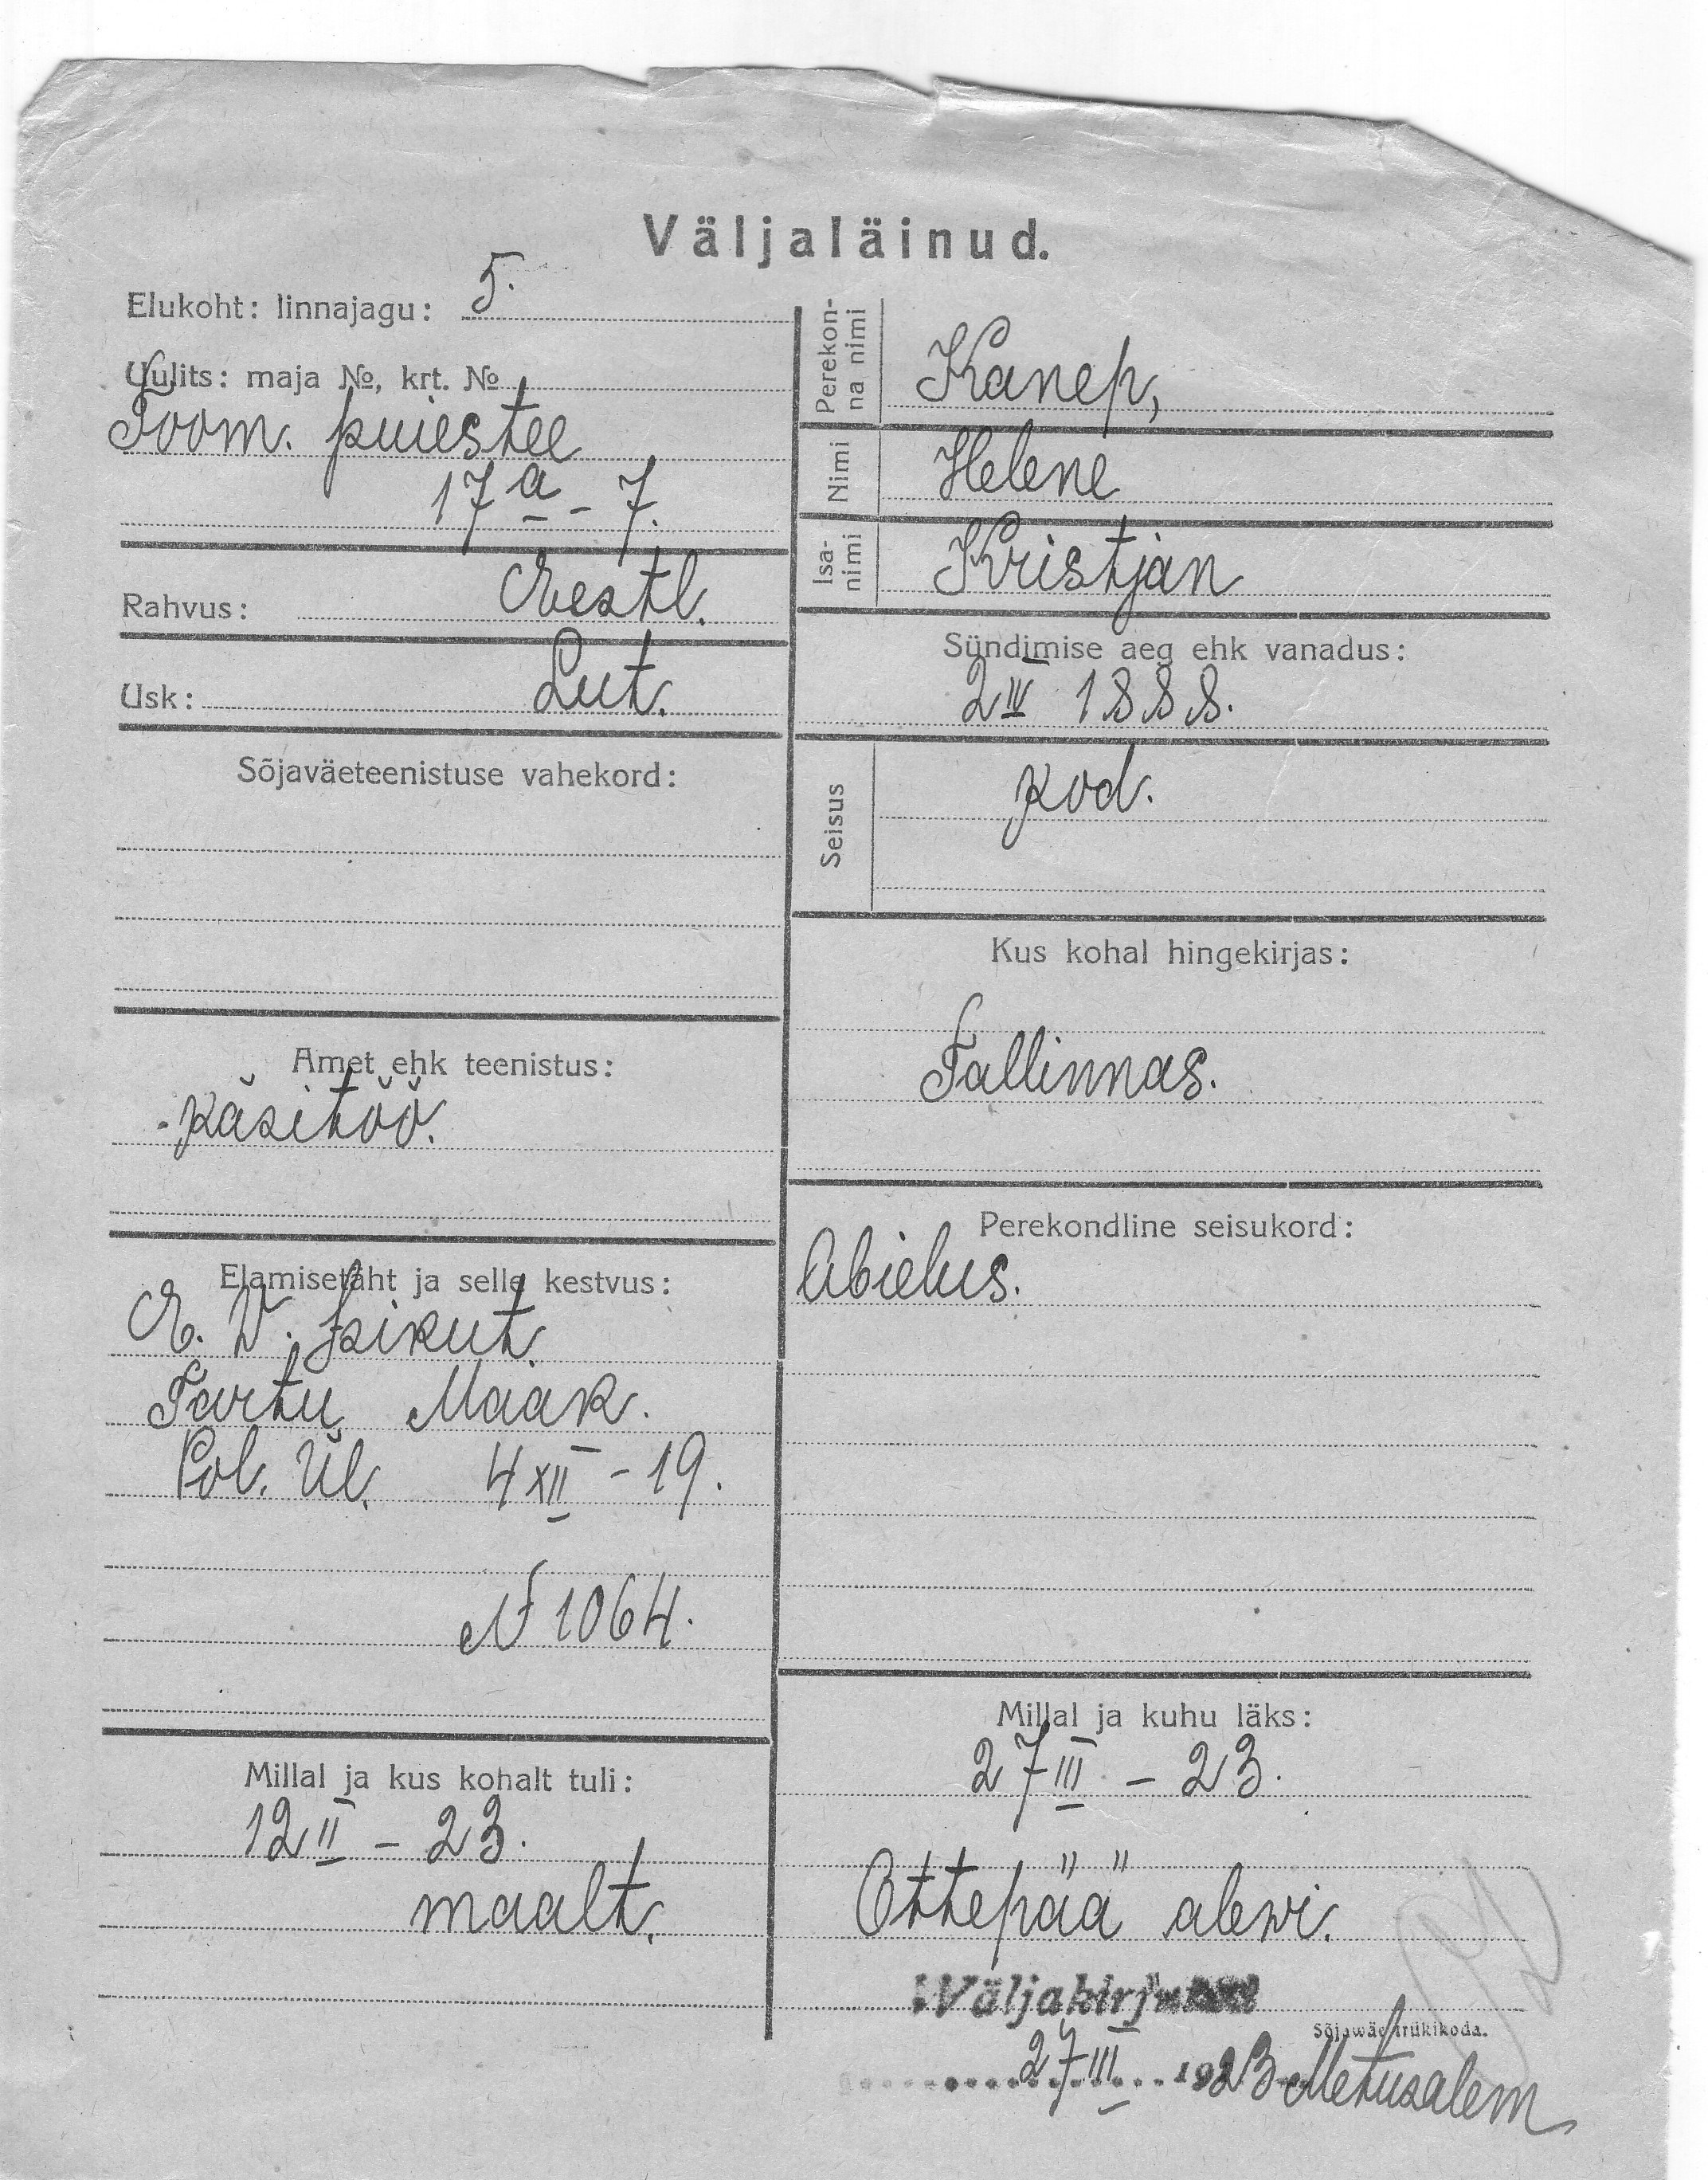 Väljaläinud.
Elukoht: linnajagu: 5.
Uulits: maja №, krt. №
Toom. puiestee
17 a - 7.
Rahvus: Eestl.
Usk: Lut.
Sõjaväeteenistuse vahekord:
Amet ehk teenistus:
Käsitöö.
Elamisetäht ja selle kestvus:
E. W. isikut.
Tartu Maak.
Pol. Ül. 4 XII - 19.
N 1064.
Millal ja kus kohalt tuli:
12 II - 23.
maalt.
Perekon-
na nimi
Kanep,
Nimi
Helene
Isa-
nimi
Kristjan
Sündimise aeg ehk vanadus:
2 IV 1888.
Seisus
Kod.
Kus kohal hingekirjas:
Tallinnas.
Perekondline seisukord:
Abielus.
Millal ja kuhu läks:
27 III - 23.
Ottepää alewi.
Sõjawäe trükikoda.
27 III 1923 Metusalem